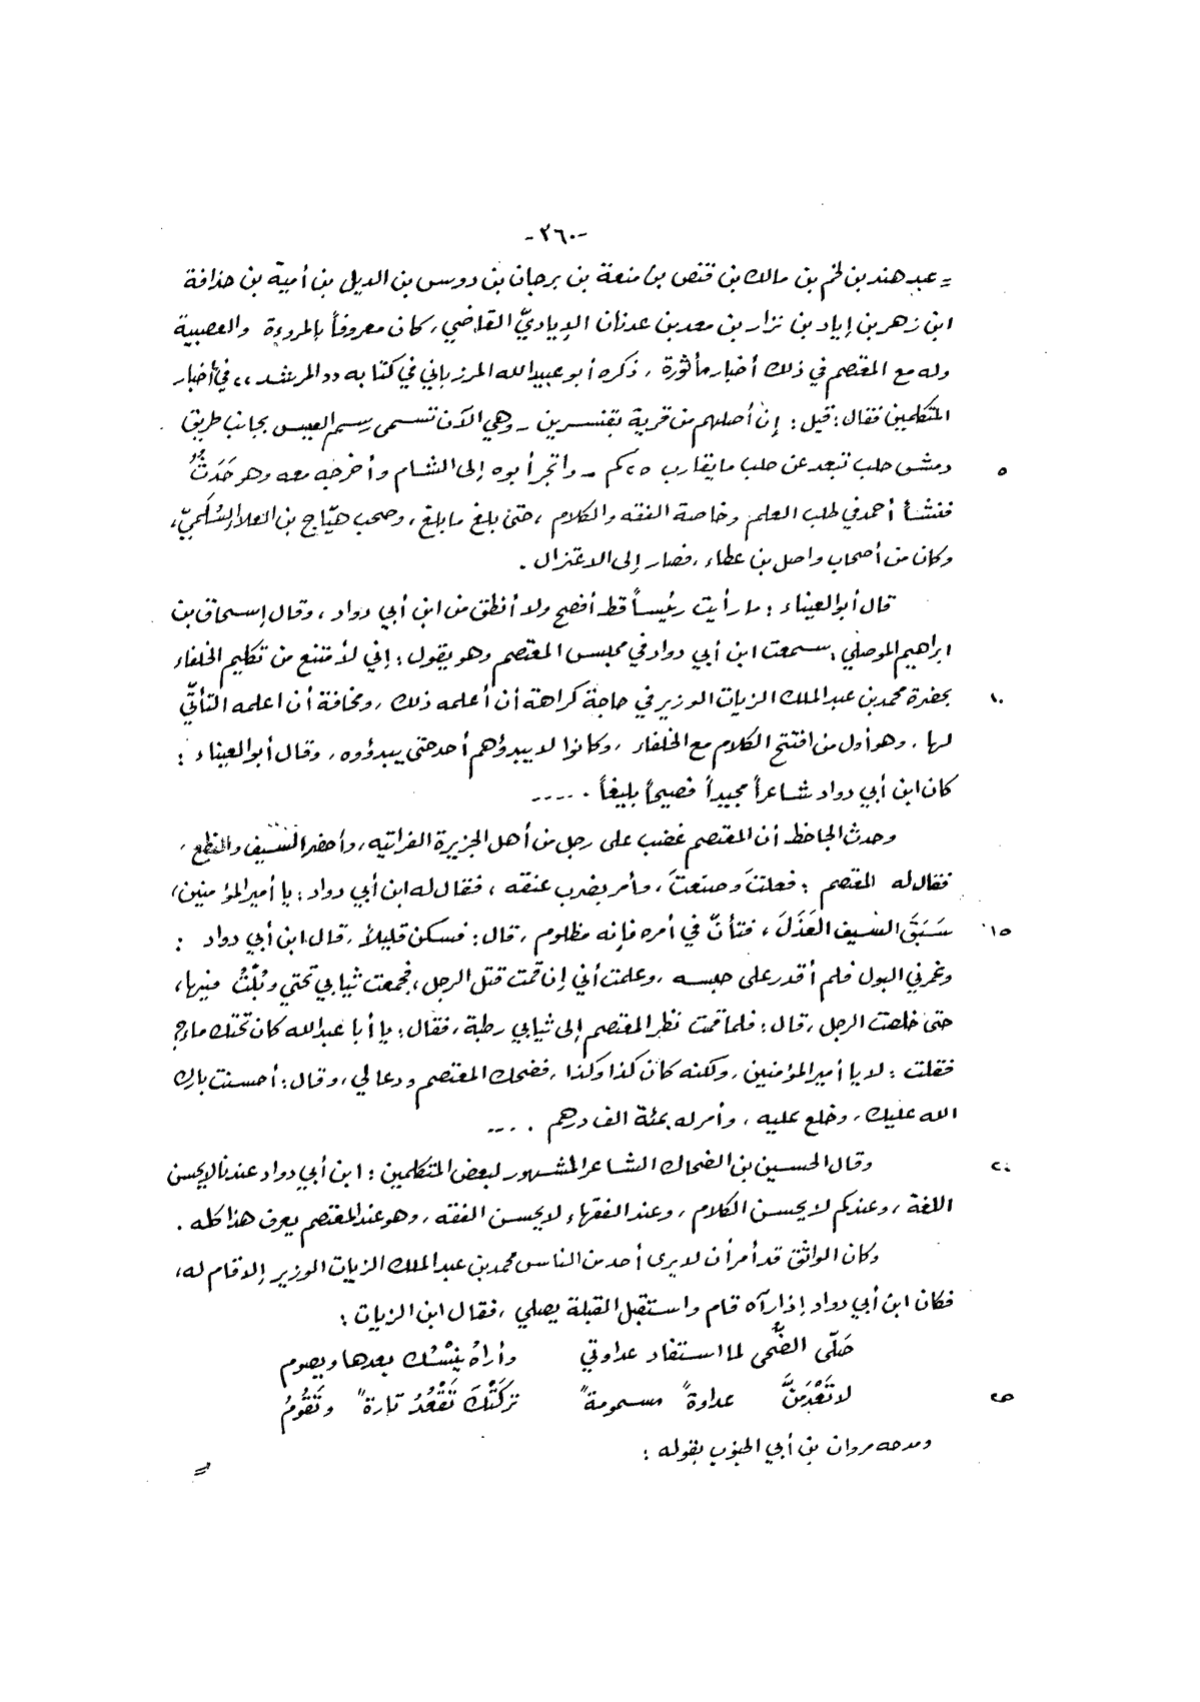 -٣٦٠-
= عبد هند بن لخم بن مالك بن قنص بن منعة بن برجان بن دوس بن الديل بن أمية بن حذافة
ابن زهر بن إياد بن نزار بن معد بن عدنان الإياديّ القاضي، كان معروفاً بالمروءة والعصبية
وله مع المعتصم في ذلك أخبار مأثورة، ذكره أبو عبيد الله المرزباني في كتابه ،،المرشد،، في أخبار
المتكلمين فقال: قيل: إن أصلهم من قرية بقنسرين - وهي الآن تسمى رسم العيس بجانب طريق
٥ دمشق حلب تبعد عن حلب ما يقارب ٢٥ كم - واتجر أبوه إلى الشام وأخرجه معه وهو حَدَثٌ
فنشأ أحمد في طلب العلم وخاصة الفقه والكلام، حتى بلغ ما بلغ، وصحب هيّاج بن العلاء السُلَميّ،
وكان من أصحاب واصل بن عطاء، فصار إلى الاعتزال.
قال أبو العيناء: ما رأيت رئيساً قط أفصح ولا أنطق من ابن أبي دواد، وقال إسحاق بن
ابراهيم الموصلي: سمعت ابن أبي دواد في مجلس المعتصم وهو يقول: إني لأمتنع من تكليم الخلفاء
١٠ بحضرة محمد بن عبد الملك الزيات الوزير في حاجة كراهة أن أعلمه ذلك، ومخافة أن اعلمه التأتّي
لها، وهو أول من افتتح الكلام مع الخلفاء، وكانوا لا يبدؤهم أحد حتى يبدؤوه، وقال أبو العيناء:
كان ابن أبي دواد شاعراً مجيداً فصيحاً بليغاً. ....
وحدث الجاحظ أن المعتصم غضب على رجل من أهل الجزيرة الفراتيه، وأحضر السّيف والنطع،
فقال له المعتصم: فعلتَ وصنعتَ، وأمر بضرب عنقه، فقال له ابن أبي دواد: يا أمير المؤمنين،
١٥ سَبَقَ السيف العَذَلَ، فتأنّ في أمره فإنه مظلوم، قال: فسكن قليلاً، قال ابن أبي دواد:
وغمرني البول فلم أقدر على حبسه، وعلمت أني إن قمت قتل الرجل، فجمعت ثيابي تحتي وبُلْتُ فيها،
حتى خلصت الرجل، قال: فلما قمت نظر المعتصم إلى ثيابي رطبة، فقال: يا أبا عبد الله كان تحتك ماء؟
فقلت: لا يا أمير المؤمنين، ولكنه كان كذا وكذا، فضحك المعتصم ودعا لي، وقال: أحسنت بارك
الله عليك، وخلع عليه، وأمر له بمئة الف درهم. ....
٢٠ وقال الحسين بن الضحاك الشاعر المشهور لبعض المتكلمين: ابن أبي دواد عندنا لا يحسن
اللغة، وعندكم لا يحسن الكلام، وعند الفقهاء لا يحسن الفقه، وهو عند المعتصم يعرف هذا كله.
وكان الواثق قد أمر أن لا يرى أحد من الناس محمد بن عبد الملك الزيات الوزير إلا قام له،
فكان ابن أبي دواد إذا رآه قام واستقبل القبلة يصلي، فقال ابن الزيات:
صَلّى الضُّحى لما استفاد عداوتي وأراهُ ينْسُك بعدها ويصوم
٢٥ لا تَعْدَمَنَّ عداوةً مسمومةً تركَتْكَ تَقْعُدُ تارةً وتَقُومُ
ومدحه مروان بن أبي الجنوب بقوله:
=